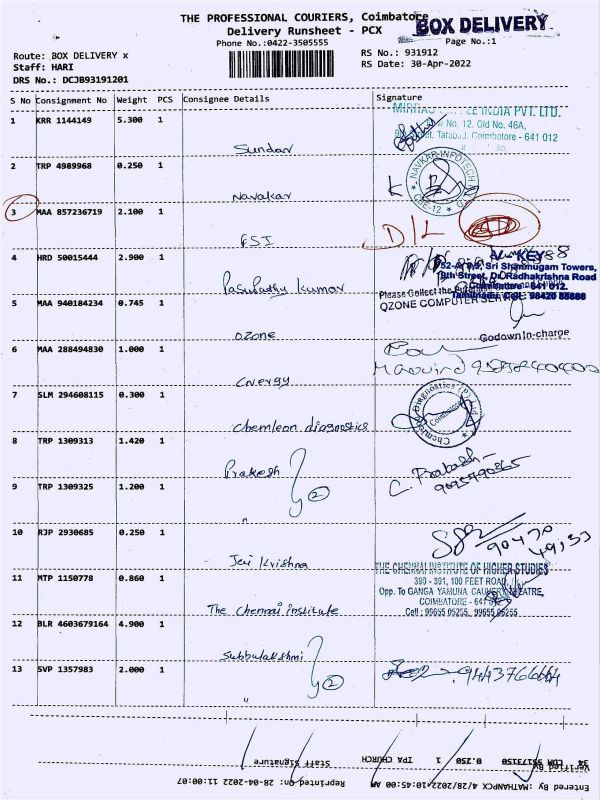 THE PROFESSIONAL COURIERS, Coimbatore
BOX DELIVERY
Delivery Runsheet - PCX
Phone No.:0422-3505555
Page No.:1
Route: BOX DELIVERY x
RS No.: 931912
Staff: HARI
RS Date: 30-Apr-2022
DRS No.: DCJB93191201
S No Consignment No Weight PCS Consignee Details Signature
1 KRR 1144149 5.300 1
INDIA PVT. LTD.
No. 12, Old No. 46A,
Tatabad, Coimbatore - 641 012
Sundar
2 TRP 4989968 0.250 1
NAVKAR INFOTECH
CBE-12
Navakar
3 MAA 857236719 2.100 1
D/L
ESI
4 HRD 50015444 2.900 1
KEY
Sri Shanmugam Towers,
8th Street, Dr. Radhakrishna Road
Coimbatore - 641 012.
Tamilnadu. Cell : 98420 88888
Pasupathy Kumar
5 MAA 940184234 0.745 1
Please Collect the
OZONE COMPUTER
Godown In-charge
Ozone
6 MAA 288494830 1.000 1
Energy
7 SLM 294608115 0.300 1
Chemleon Diagnostics (P)
Coimbatore
Chemleon diagnostics
8 TRP 1309313 1.420 1
Prakesh
2
C. Prakash
9 TRP 1309325 1.200 1
"
10 RJP 2930685 0.250 1
90470
49133
Jai Krishna
11 MTP 1150778 0.860 1
THE CHENNAI INSTITUTE OF HIGHER STUDIES
390 - 391, 100 FEET ROAD,
Opp. To GANGA YAMUNA CAUVERY THEATRE,
COIMBATORE - 641 012
Cell : 99655 05255, 99655 05255
The Chennai institute
12 BLR 4603679164 4.900 1
Subbulakshmi
2
13 SVP 1357983 2.000 1
9443766664
"
34 CDM 55173150 0.250 1 IPA CHURCH
Verified By
Staff Signature
Entered By :MATHANPCX 4/28/2022/10:45:00 AM
Reprinted On: 28-04-2022 11:00:07